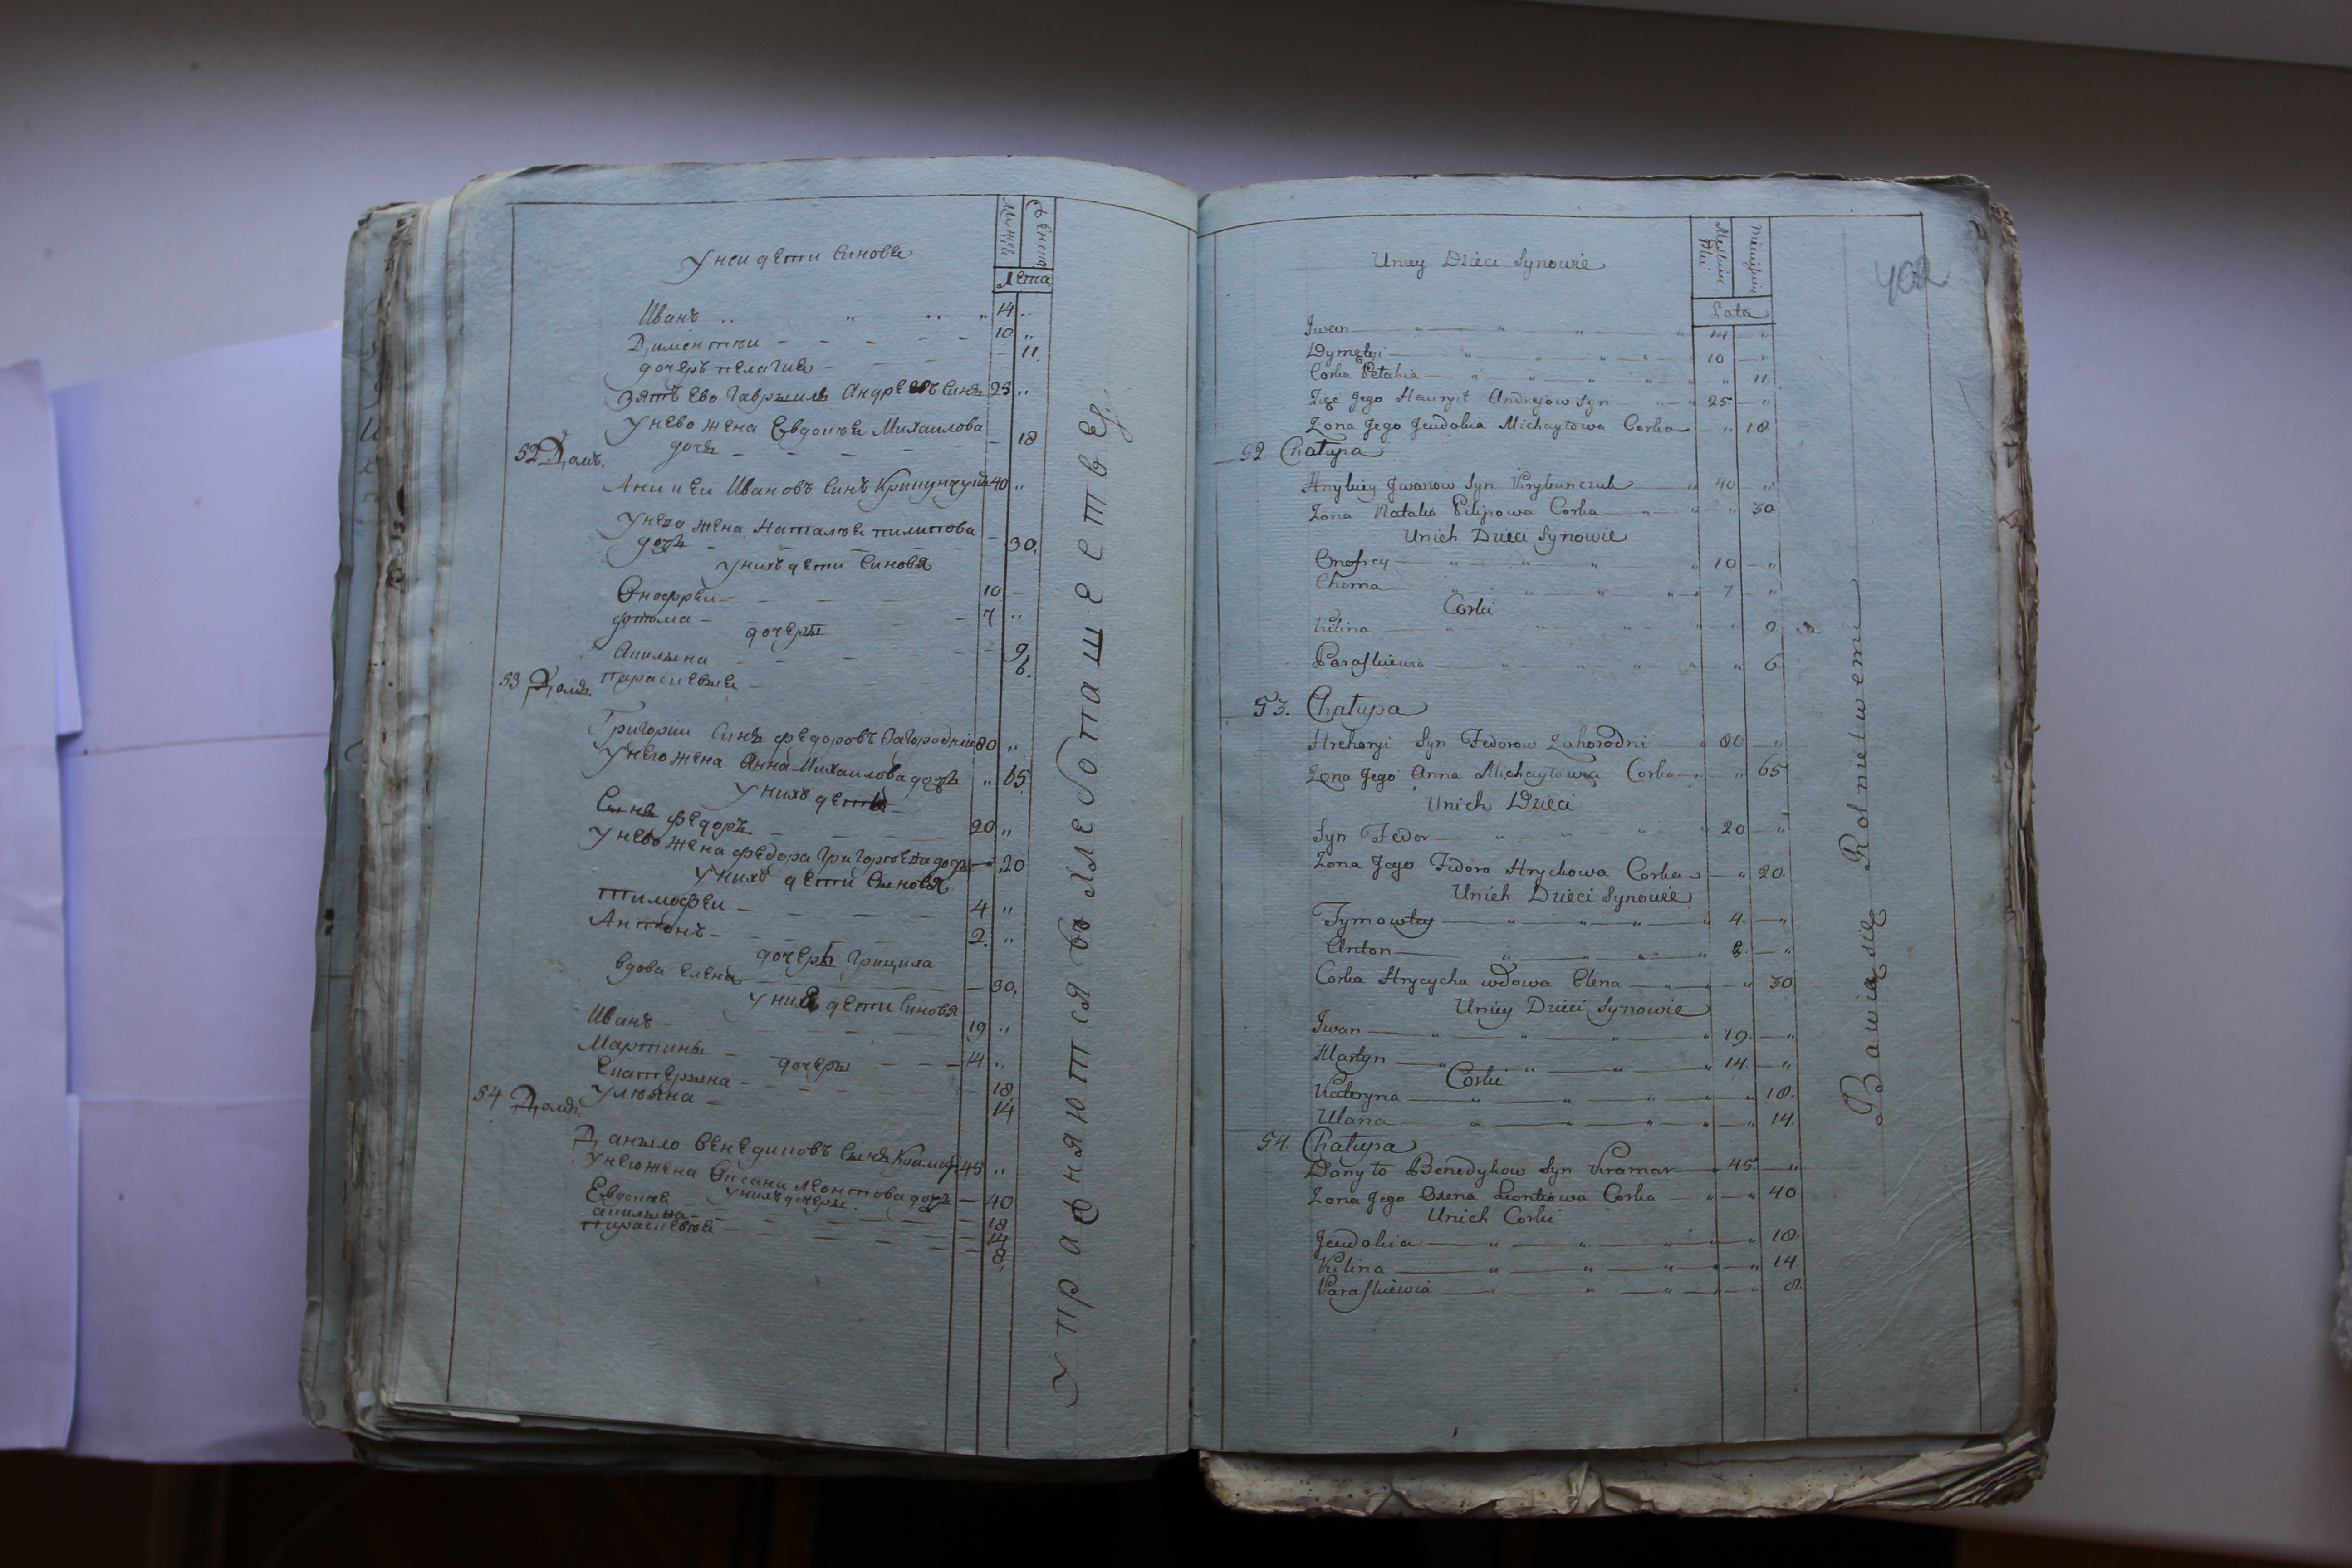 Мужеска
Женска
Лета
У неи дети синове
Иванъ 14
Диментии 10
дочеръ пелагия 11
Зять ево Гаврыило Андреевъ синъ 25
у нево жена Евдокия Михаилова
доче 18
52 Домъ.
Аникеи Ивановъ синъ Крипунчукъ 40
у нево жена Наталья пилипова
дочь 30
у нихъ дети синовя
Онофреи 10
фтома 7
дочеры
Акилына 9
параскевыя 6.
53 Домъ
Григории синъ федоровъ Загороднии 80
у него жена Анна Михаилова дочь 65
у нихъ дети
Сынъ федоръ 20
у нево жена федора Григорьева дочь 20
у нихъ дети сыновя
Тимофеи 4
Антонъ 2.
дочеръ Грициха
вдова елена 30,
у ниё дети синовя
Иванъ 19
Мартинъ 14
дочеры
Екатерына 18
ульяна 14
54 Домъ
Даныло Венедиковъ сынъ Крамар 45
у него жена Оксана Леонтова дочь 40
у нихъ дочеры.
Евдокия 18
акилына 14
параскевья 8,
Упражняются въ хлебопашестве
402
Męskiei
Płci
Niewieści
Lata
Uniey Dzieci Synowie
Jwan 14
Dymętyi 10
Corka Pelahia 11
Zięć Jego Hawryił Andrejow Syn 25
Zona Jego Jewdokia Michayłowa Corka 18
52 Chałupa
Anykiy Jwanow Syn Krykunczuk 40
Zona Natalia Pilipowa Corka 30
Unich Dzieci Synowie
Onofrey 10
Choma 7
Corki
Kilina 9
Paraskiewia 6
53. Chałupa
Hrehoryi Syn Fedorow Zahorodni 80
Zona Jego Anna Michayłowa Corka 65
Unich Dzieci
Syn Fedor 20
Zona Jego Fedora Hrychowa Corka 20.
Unich Dzieci Synowie
Tymowtey 4.
Anton 2.
Corka Hrycycha wdowa Elena 30
Uniey Dzieci Synowie
Jwan 19.
Martyn 14.
Corki
Kateryna 18.
Ulana 14.
54. Chałupa
Danyło Benedykow Syn Kramar 45.
Zona Jego Oxena Leontiowa Corka 40
Unich Corki
Jewdokia 18.
Kilina 14.
Paraskiewia 8.
Bawią się Rolnictwem